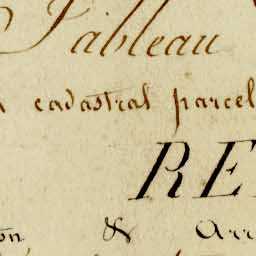 Tableau
cadastral parcel
RE
on & Arr